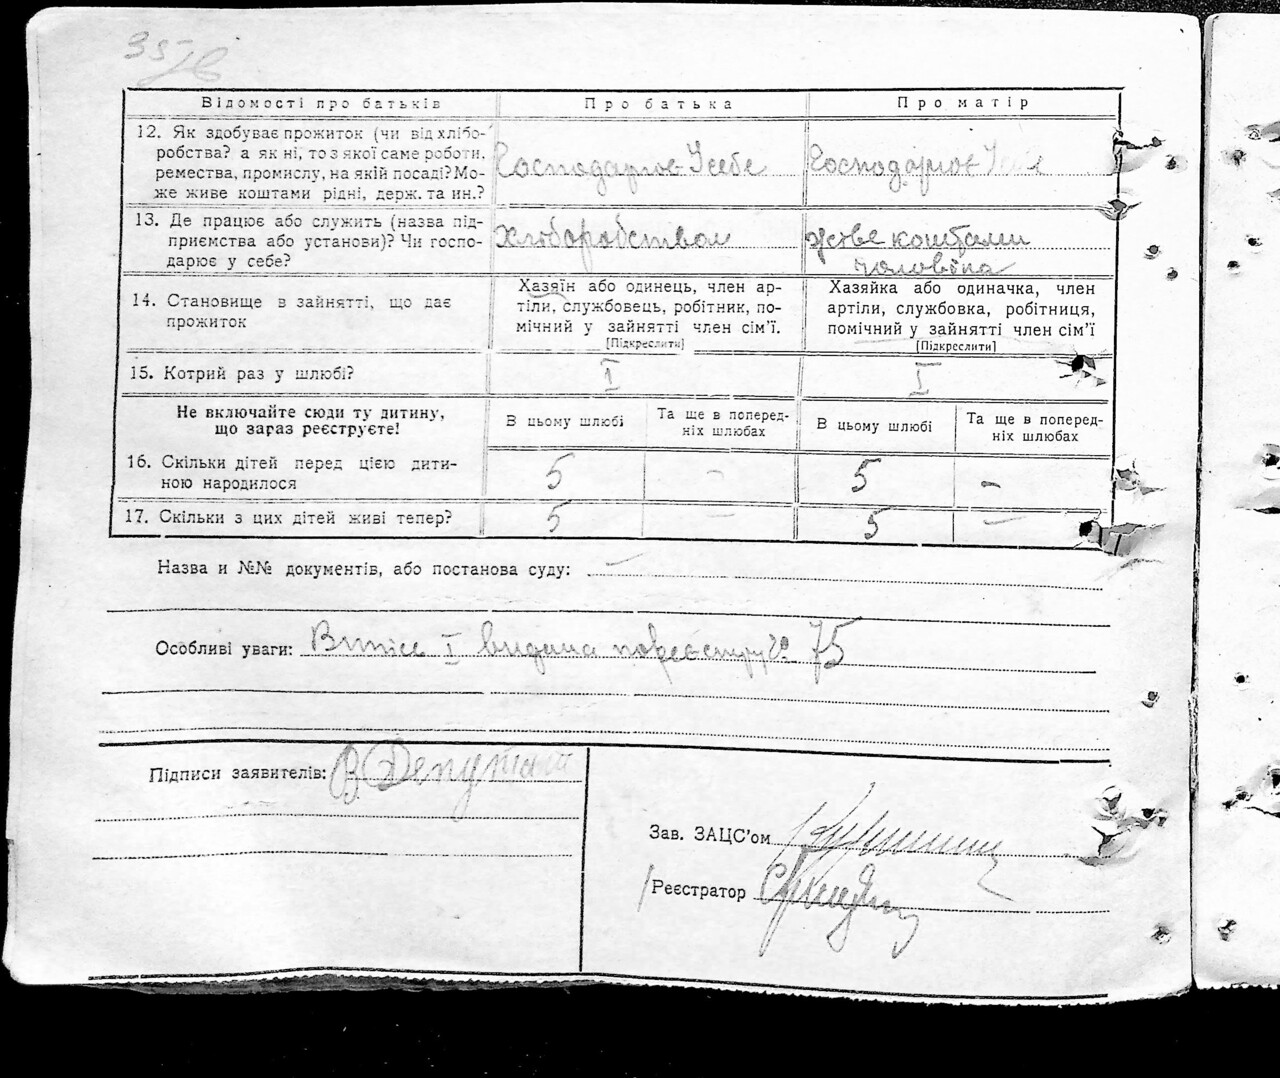 35
Відомості про батьків Про батька Про матір
12. Як здобуває прожиток (чи від хлібо-
робства? а як ні, то з якої саме роботи.
ремества, промислу, на якій посаді? Мо-
же живе коштами рідні, держ. та ин.?
Господарює У себе Господарює У
13. Де працює або служить (назва під-
приємства або установи)? Чи госпо-
дарює у себе?
Хліборобством живе коштами
чоловіка
14. Становище в зайнятті, що дає
прожиток
Хазяїн або одинець, член ар-
тіли, службовець, робітник, по-
мічний у зайнятті член сім'ї.
[Підкреслити]
Хазяйка або одиначка, член
артіли, службовка, робітниця,
помічний у зайнятті член сім'ї
[Підкреслити]
15. Котрий раз у шлюбі? I I
Не включайте сюди ту дитину,
що зараз реєструєте!
В цьому шлюбі Та ще в поперед-
ніх шлюбах В цьому шлюбі Та ще в поперед-
ніх шлюбах
16. Скільки дітей перед цією дити-
ною народилося 5 - 5 -
17. Скільки з цих дітей живі тепер? 5 - 5 -
Назва и №№ документів, або постанова суду: -
Особливі уваги: Випис I видана по реєстру № 75
Підписи заявителів:
Зав. ЗАЦС'ом
Реєстратор